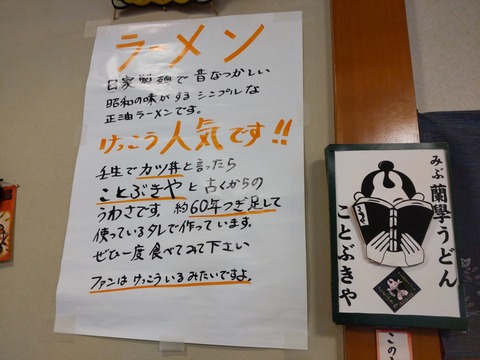 ラーメン
自家製麺で昔なつかしい
昭和の味がする シンプルな
正油ラーメンです。
けっこう人気です!!
壬生でカツ丼と言ったら
ことぶきやと古くからの
うわさです。約60年つぎ足して
使っているタレで作っています。
ぜひ一度食べてみて下さい
ファンはけっこういるみたいですよ。
みぶ 蘭學うどん
ことぶきや
この